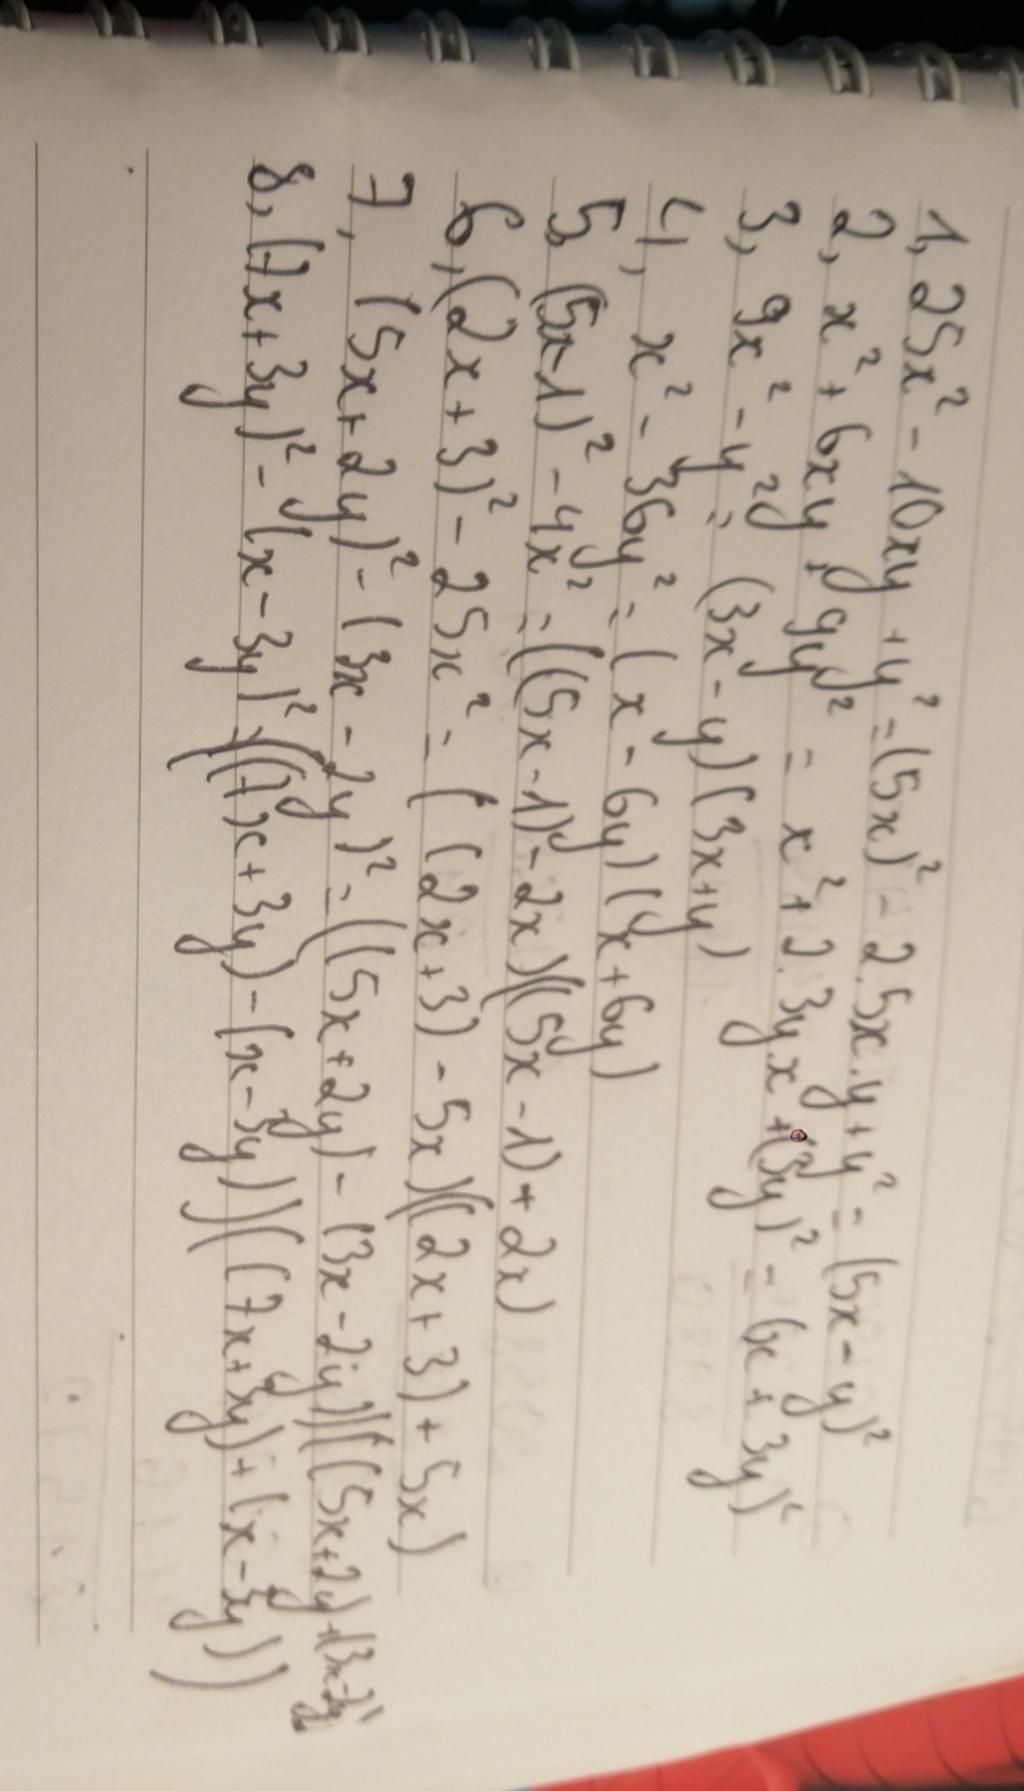 1, 25x² - 10xy + y² = (5x)² - 2.5x.y + y² = (5x - y)²
2, x² + 6xy + 9y² = x² + 2.3y.x + (3y)² = (x + 3y)²
3, 9x² - y² = (3x - y)(3x + y)
4, x² - 36y² = (x - 6y)(x + 6y)
5, (5x - 1)² - 4x² = ((5x - 1) - 2x)((5x - 1) + 2x)
6, (2x + 3)² - 25x² = ((2x + 3) - 5x)((2x + 3) + 5x)
7, (5x + 2y)² - (3x - 2y)² = ((5x + 2y) - (3x - 2y))((5x + 2y) + (3x - 2y))
8, (7x + 3y)² - (x - 3y)² = ((7x + 3y) - (x - 3y))((7x + 3y) + (x - 3y))